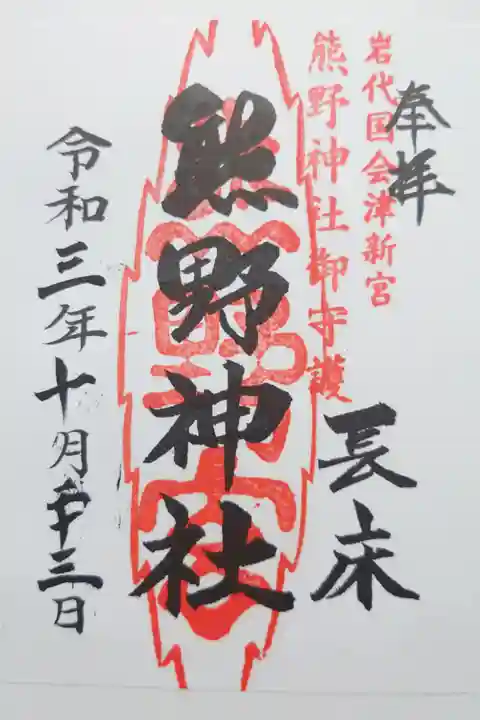 奉拝
長床
岩代国会津新宮
熊野神社御守護
熊野神社
令和三年十月廿三日